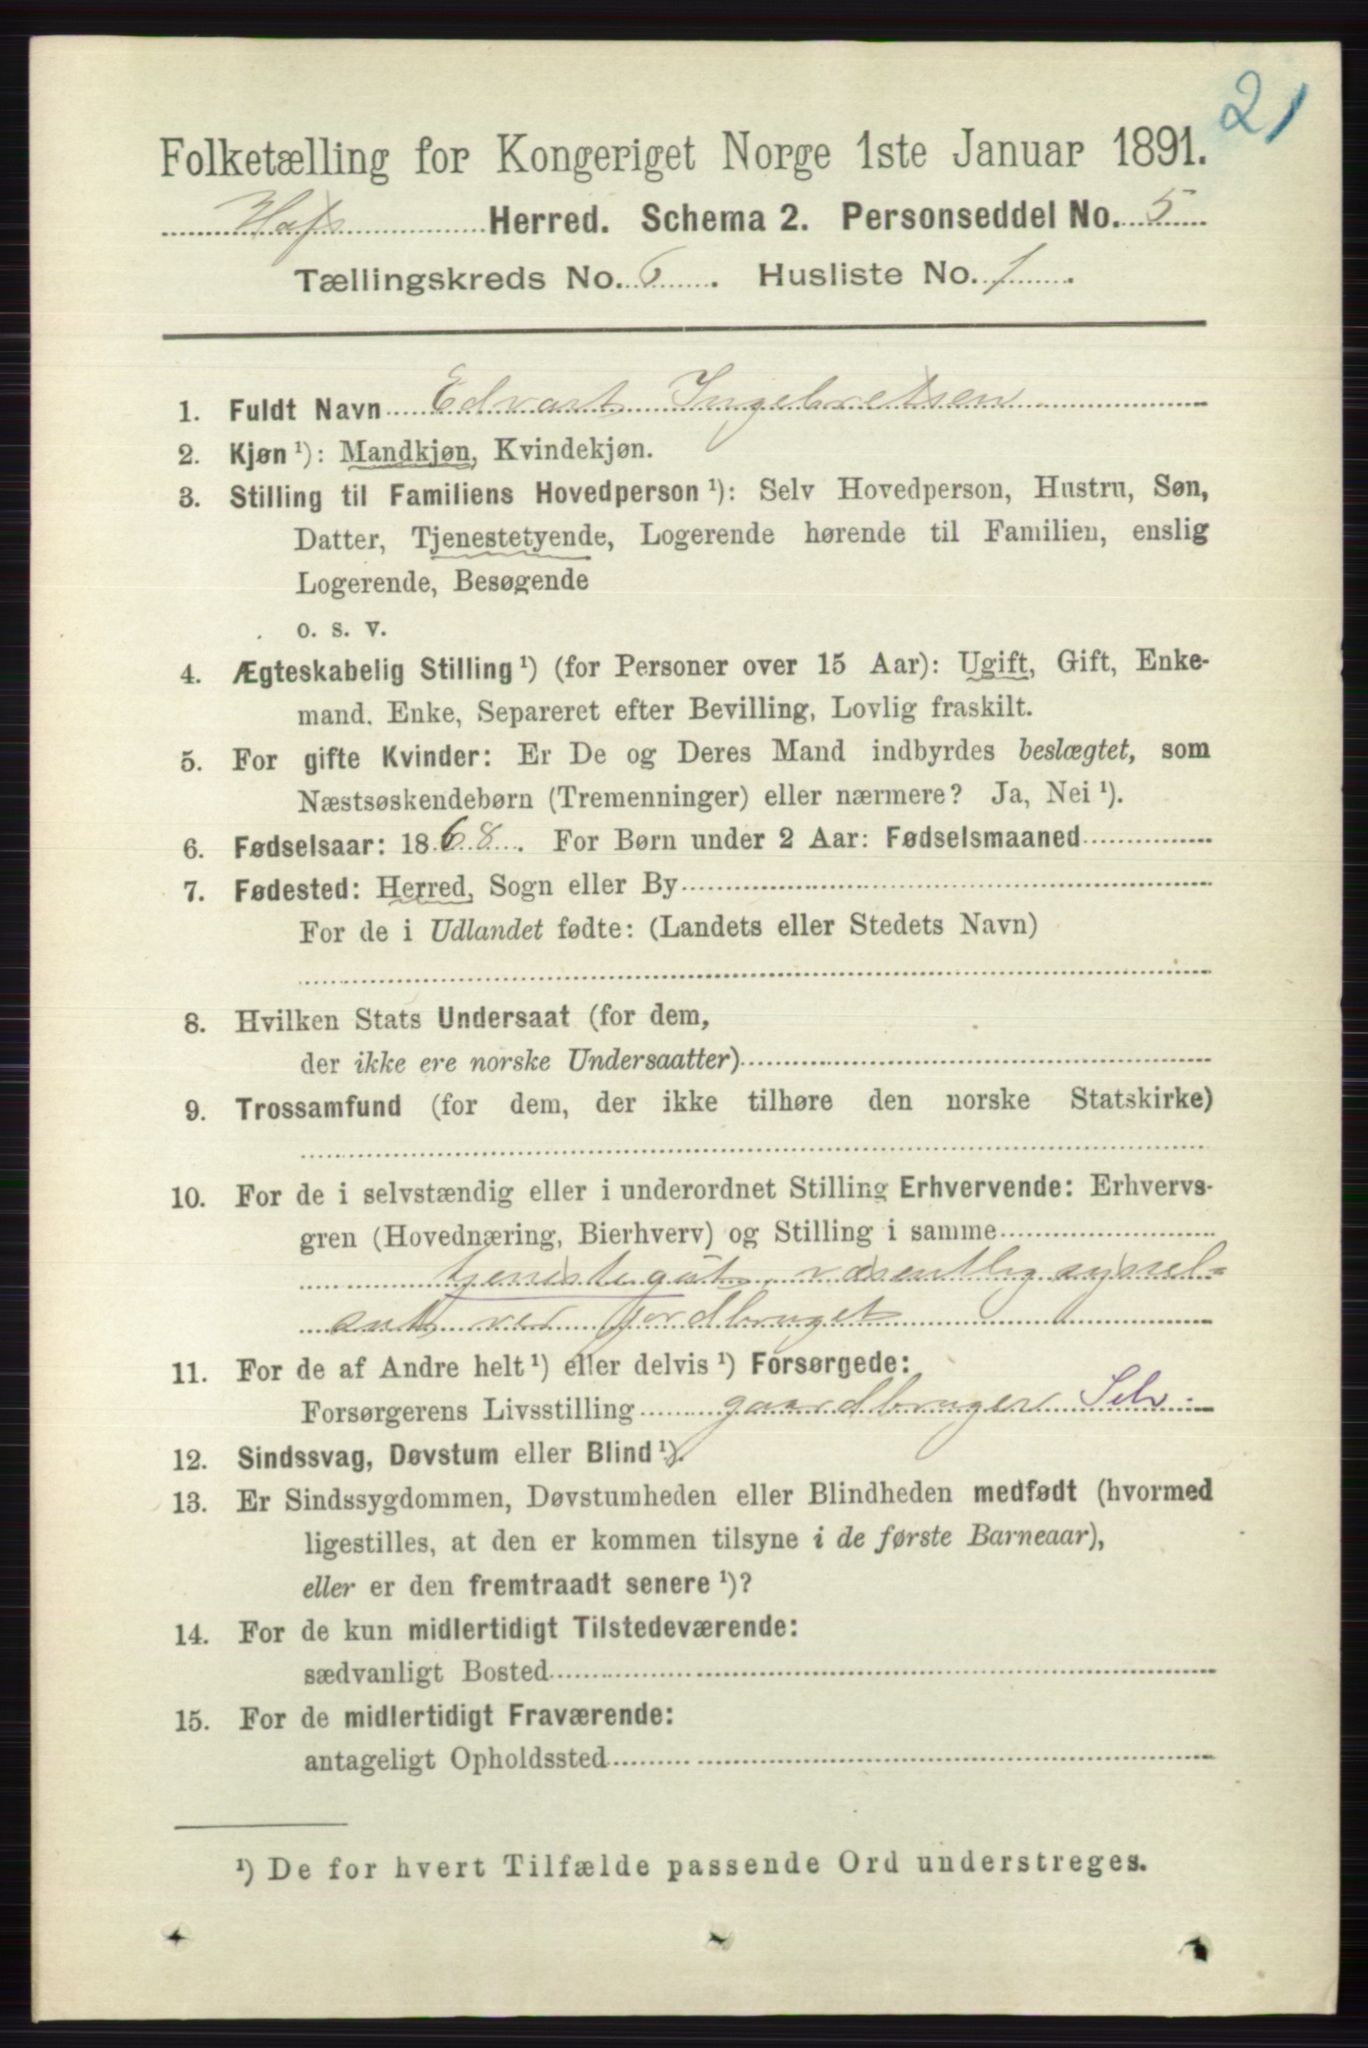 21
Folketælling for Kongeriget Norge 1ste Januar 1891.
Herred. Schema 2. Personseddel No. 5
Tællingskreds No. 6. Husliste No. 1.
1. Fuldt Navn Edvart Ingebretsen
2. Kjøn ¹): Mandkjøn, Kvindekjøn.
3. Stilling til Familiens Hovedperson ¹): Selv Hovedperson, Hustru, Søn,
Datter, Tjenestetyende, Logerende hørende til Familien, enslig
Logerende, Besøgende
o. s. v.
4. Ægteskabelig Stilling ¹) (for Personer over 15 Aar): Ugift, Gift, Enke-
mand, Enke, Separeret efter Bevilling, Lovlig fraskilt.
5. For gifte Kvinder: Er De og Deres Mand indbyrdes beslægtet, som
Næstsøskendebørn (Tremenninger) eller nærmere? Ja, Nei ¹).
6. Fødselsaar: 1868. For Børn under 2 Aar: Fødselsmaaned
7. Fødested: Herred, Sogn eller By
For de i Udlandet fødte: (Landets eller Stedets Navn)
8. Hvilken Stats Undersaat (for dem,
der ikke ere norske Undersaatter)
9. Trossamfund (for dem, der ikke tilhøre den norske Statskirke)
10. For de i selvstændig eller i underordnet Stilling Erhvervende: Erhvervs-
gren (Hovednæring, Bierhverv) og Stilling i samme
tjenestegut, væsentlig syssel-
sat ved jordbruget
11. For de af Andre helt ¹) eller delvis ¹) Forsørgede:
Forsørgerens Livsstilling gaardbruger Selv.
12. Sindssvag, Døvstum eller Blind ¹).
13. Er Sindssygdommen, Døvstumheden eller Blindheden medfødt (hvormed
ligestilles, at den er kommen tilsyne i de første Barneaar),
eller er den fremtraadt senere ¹)?
14. For de kun midlertidigt Tilstedeværende:
sædvanligt Bosted
15. For de midlertidigt Fraværende:
antageligt Opholdssted
¹) De for hvert Tilfælde passende Ord understreges.